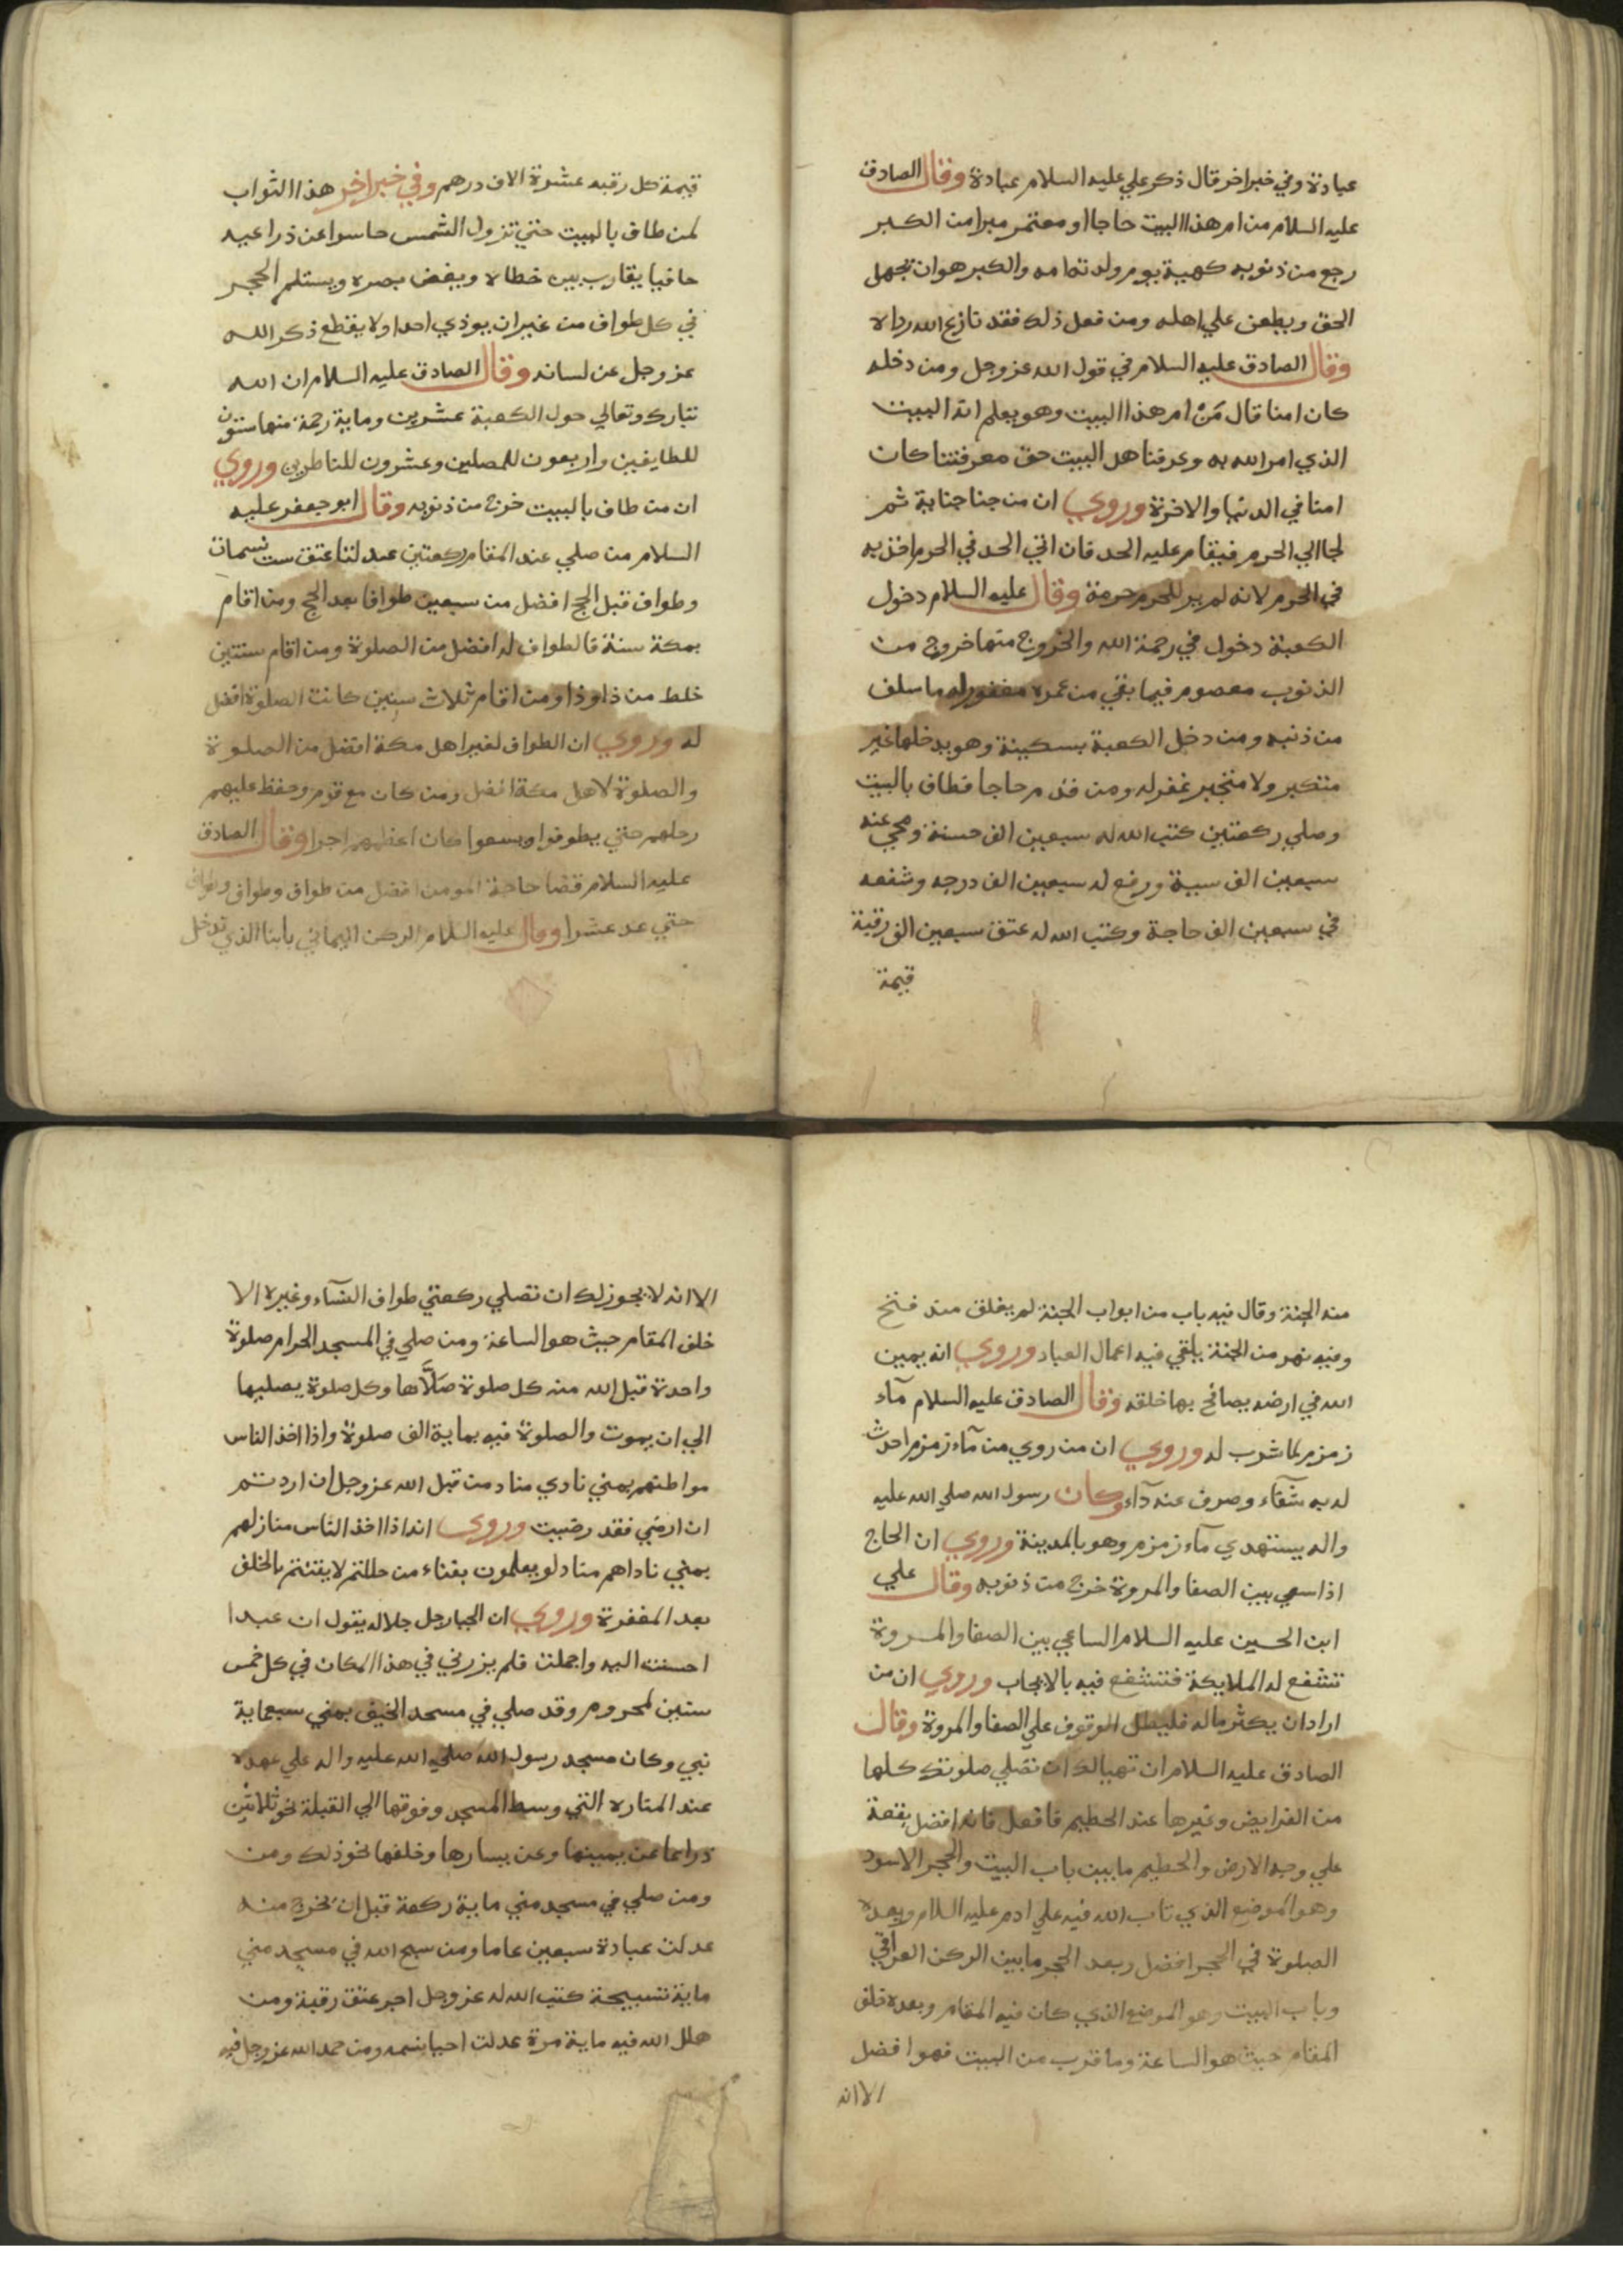 عبادة وفي خبر اخر قال ذكر علي عليه السلام عبادة وقال الصادق
عليه السلام من ام هذا البيت حاجا او معتمر مبرا من الكبر
رجع من ذنوبه كهيية يوم ولدته امه والكبر هو ان تجهل
الحق ويطعن علي اهله ومن فعل ذلك فقد نازع الله رداه
وقال الصادق عليه السلام في قول الله عز وجل ومن دخله
كان امنا قال مَنْ ام هذا البيت وهو يعلم انه البيت
الذي امر الله به وعرفنا هل البيت حق معرفتنا كان
امنا في الدنيا والاخرة وروي ان من جنا جناية ثم
لجا الي الحرم فيقام عليه الحد فان اتي الحد في الحرم اخذ به
في الحرم لانه لم ير للحرم حرمة وقال عليه السلام دخول
الكعبة دخول في رحمة الله والخروج منها خروج من
الذنوب معصوم فيما بقي من عمره مغفور له ما سلف
من ذنبه ومن دخل الكعبة بسكينة وهو يدخلها غير
متكبر ولا متجبر غفر له ومن قدم حاجا فطاف بالبيت
وصلي ركعتين كتب الله له سبعين الف حسنة ومحي عنه
سبعين الف سيية ورفع له سبعين الف درجه وشفعه
في سبعين الف حاجة وكتب الله له عتق سبعين الف رقبة
قيمة
قيمة كل رقبه عشرة الاف درهم وفي خبر اخر هذا الثواب
لمن طاف بالبيت حتي تزول الشمس حاسرا عن ذراعيه
حافيا يقارب بين خطاه ويغض بصره ويستلم الحجر
في كل طواف من غير ان يوذي احدا ولا يقطع ذكر الله
عز وجل عن لسانه وقال الصادق عليه السلام ان الله
تبارك وتعالي حول الكعبة عشرين وماية رحمة منها ستون
للطايفين واربعون للمصلين وعشرون للناظرين وروي
ان من طاف بالبيت خرج من ذنوبه وقال ابو جعفر عليه
السلام من صلي عند المقام ركعتين عدلتا عتق ست نسمات
وطواف قبل الحج افضل من سبعين طوافا بعد الحج ومن اقام
بمكة سنة فالطواف له افضل من الصلوة ومن اقام سنتين
خلط من ذا وذا ومن اقام ثلاث سنين كانت الصلوة افضل
له وروي ان الطواف لغير اهل مكة افضل من الصلوة
والصلوة لاهل مكة افضل ومن كان مع قوم وحفظ عليهم
رحلهم حتي يطوفوا ويسعوا كان اعظمهم اجرا وقال الصادق
عليه السلام قضا حاجة المومن افضل من طواف وطواف وطواف
حتي عد عشرا وقال عليه السلام الركن اليماني بابنا الذي ندخل
منه الجنة وقال فيه باب من ابواب الجنة لم يغلق منذ فتح
وفيه نهر من الجنة يلقي فيه اعمال العباد وروي انه يمين
الله في ارضه يصافح بها خلقه وقال الصادق عليه السلام مآء
زمزم لما شرب له وروي ان من روي من مآء زمزم احدث
له به شفآء وصرف عنه دآء وكان رسول الله صلي الله عليه
واله يستهدي مآء زمزم وهو بالمدينة وروي ان الحاج
اذا سعي بين الصفا والمروة خرج من ذنوبه وقال علي
ابن الحسين عليه السلام الساعي بين الصفا والمروة
تشفع له الملايكة فتشفع فيه بالايجاب وروي ان من
اراد ان يكثر ماله فليطل الوقوف علي الصفا والمروة وقال
الصادق عليه السلام ان تهيا لك ان تصلي صلوتك كلها
من الفرايض وغيرها عند الحطيم فافعل فانه افضل بقعة
علي وجه الارض والحطيم ما بين باب البيت والحجر الاسود
وهو الموضع الذي تاب الله فيه علي ادم عليه السلام وبعده
الصلوة في الحجر افضل وبعد الحجر ما بين الركن العراقي
وباب البيت وهو الموضع الذي كان فيه المقام وبعده خلف
المقام حيث هو الساعة وما قرب من البيت فهو افضل
الا انه
الا انه لا يجوز لك ان تصلي ركعتي طواف النسآء وغيره الا
خلف المقام حيث هو الساعة ومن صلي في المسجد الحرام صلوة
واحدة قبل الله منه كل صلوة صَلَّاها وكل صلوة يصليها
الي ان يموت والصلوة فيه بماية الف صلوة واذا اخذ الناس
مواطنهم بمني نادي مناد من قبل الله عز وجل ان اردتم
ان ارضي فقد رضيت وروي انه اذا اخذ الناس منازلهم
بمني ناداهم مناد لو يعلمون بفناء من حللتم لايقنتم بالخلف
بعد المغفرة وروي ان الجبار جل جلاله يقول ان عبدا
احسنت اليه واجملت فلم يزرني في هذا المكان في كل خمس
سنين لمحروم وقد صلي في مسجد الخيف بمني سبعماية
نبي وكان مسجد رسول الله صلي الله عليه واله علي عهده
عند المناره التي وسط المسجد وفوقها الي القبلة نحو ثلاثين
ذراعا عن يمينها وعن يسارها وخلفها نحو ذلك ومن
ومن صلي في مسجد مني ماية ركعة قبل ان يخرج منه
عدلت عبادة سبعين عاما ومن سبح الله في مسجد مني
ماية تسبيحة كتب الله له عز وجل اجر عتق رقبة ومن
هلل الله فيه ماية مرة عدلت احيا نسمه ومن حمد الله عز وجل فيه